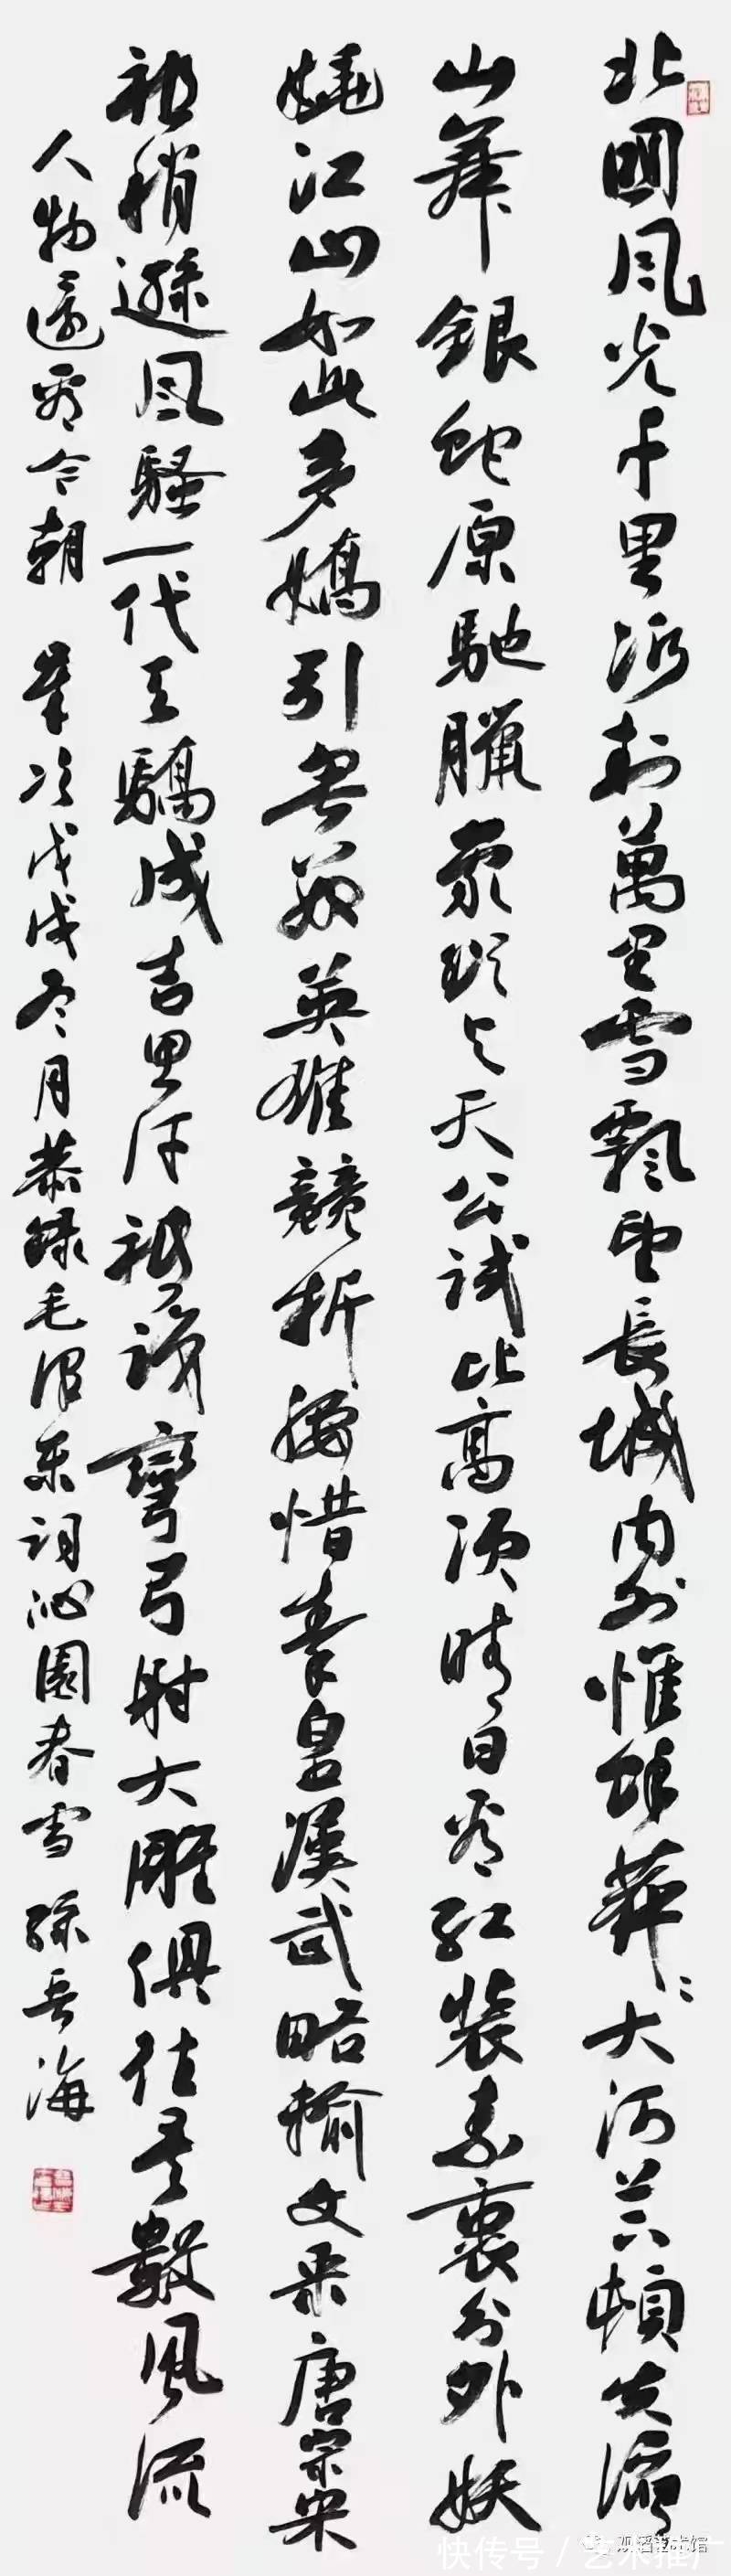 北國風光千里冰封萬里雪飄望長城內外惟餘莽〻大河上下頓失滔〻
山舞銀蛇原馳臘象欲与天公試比高須晴日看紅裝素裹分外妖
嬈江山如此多嬌引無數英雄競折腰惜秦皇漢武略輸文采唐宗宋
祖稍遜風騷一代天驕成吉思汗祇識彎弓射大雕俱往矣數風流
人物還看今朝 歲次戊戌冬月恭錄毛澤東詞沁園春雪 孫海
快传号 / 艺术推广